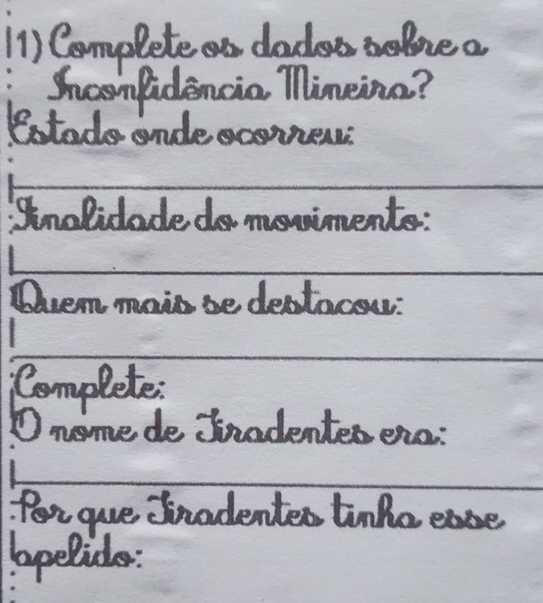 1) Complete os dados sobre a
Inconfidência Mineira?
Estado onde ocorreu:
Finalidade do movimento:
Quem mais se destacou:
Complete:
O nome de Tiradentes era:
Por que Tiradentes tinha esse
apelido: